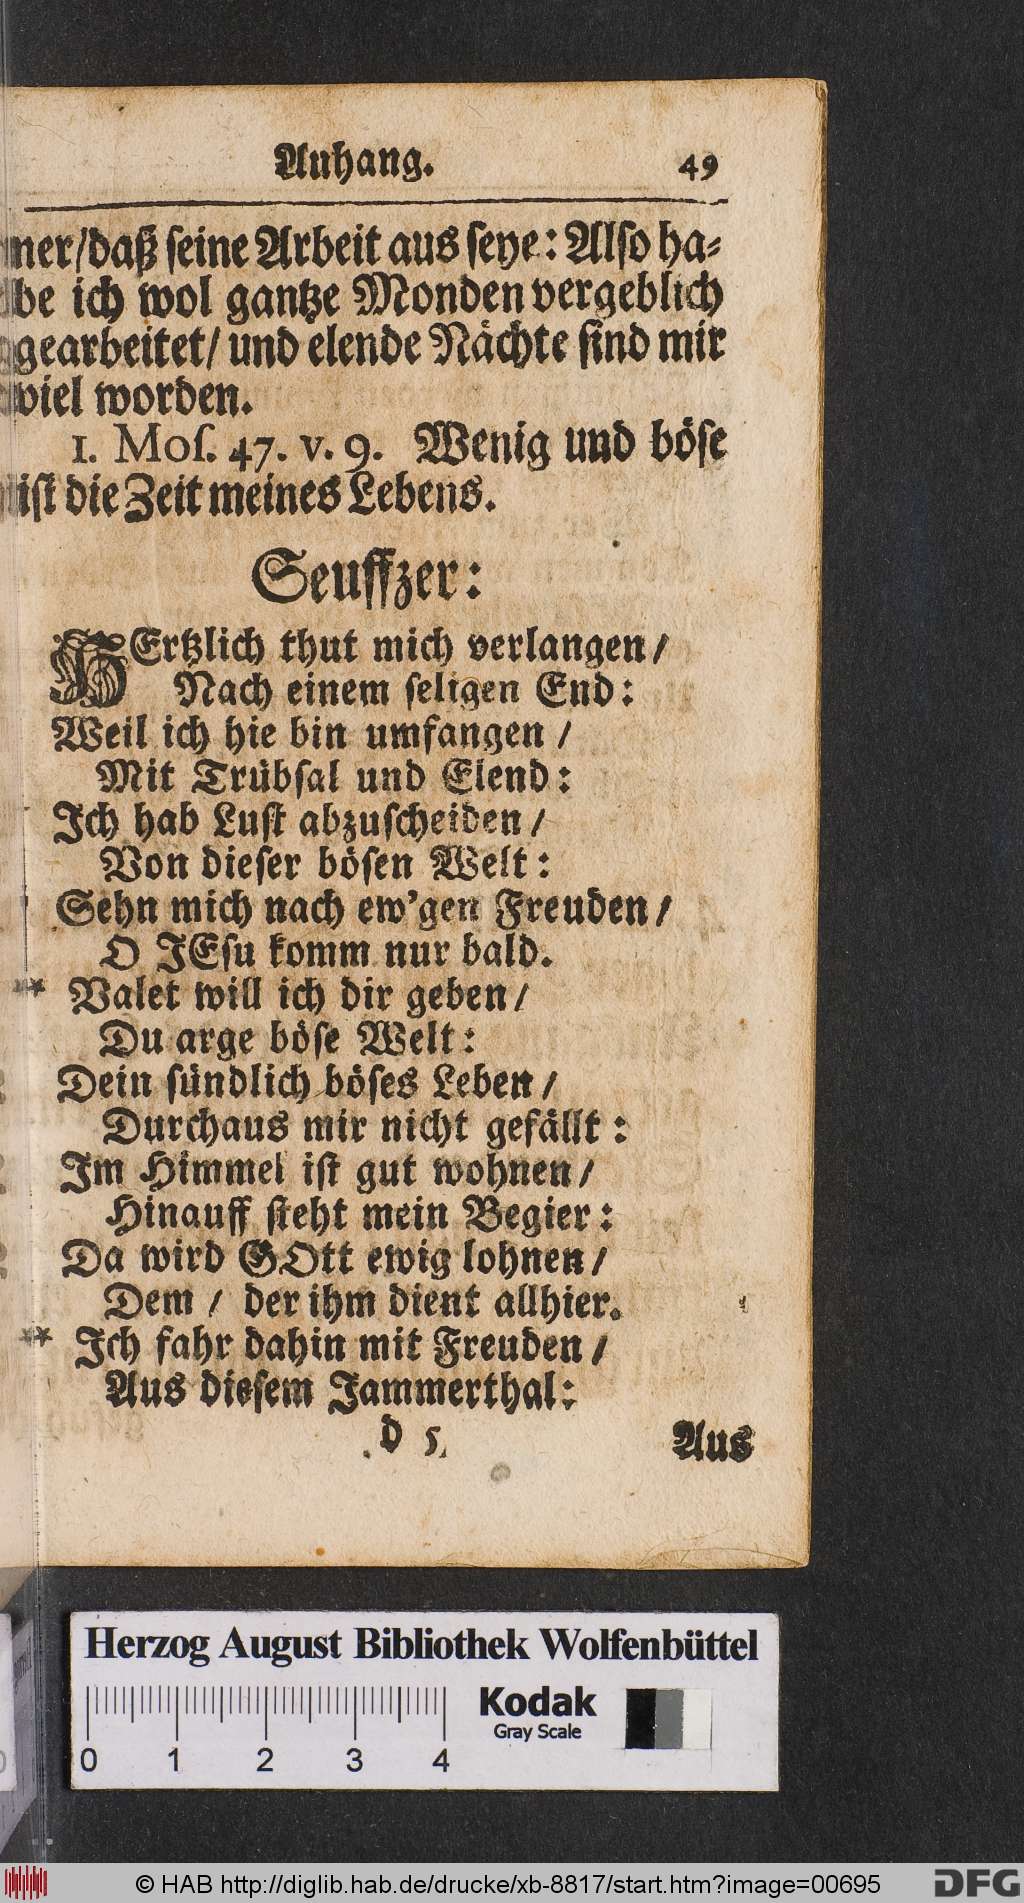 Anhang. 49
mer/daß seine Arbeit aus seye: Also ha-
be ich wol gantze Monden vergeblich
gearbeitet/ und elende Nächte sind mir
viel worden.
1. Mos. 47. v. 9. Wenig und böse
ist die Zeit meines Lebens.
Seuffzer:
HErtzlich thut mich verlangen/
Nach einem seligen End:
Weil ich hie bin umfangen /
Mit Trübsal und Elend:
Ich hab Lust abzuscheiden /
Von dieser bösen Welt:
Sehn mich nach ew'gen Freuden /
O JEsu komm nur bald.
** Valet will ich dir geben /
Du arge böse Welt:
Dein sündlich böses Leben /
Durchaus mir nicht gefällt:
Im Himmel ist gut wohnen /
Hinauff steht mein Begier:
Da wird GOtt ewig lohnen /
Dem / der ihm dient allhier.
** Ich fahr dahin mit Freuden /
Aus diesem Jammerthal:
d 5 Aus
Herzog August Bibliothek Wolfenbüttel
Kodak
Gray Scale
0 1 2 3 4
© HAB http://diglib.hab.de/drucke/xb-8817/start.htm?image=00695
DFG